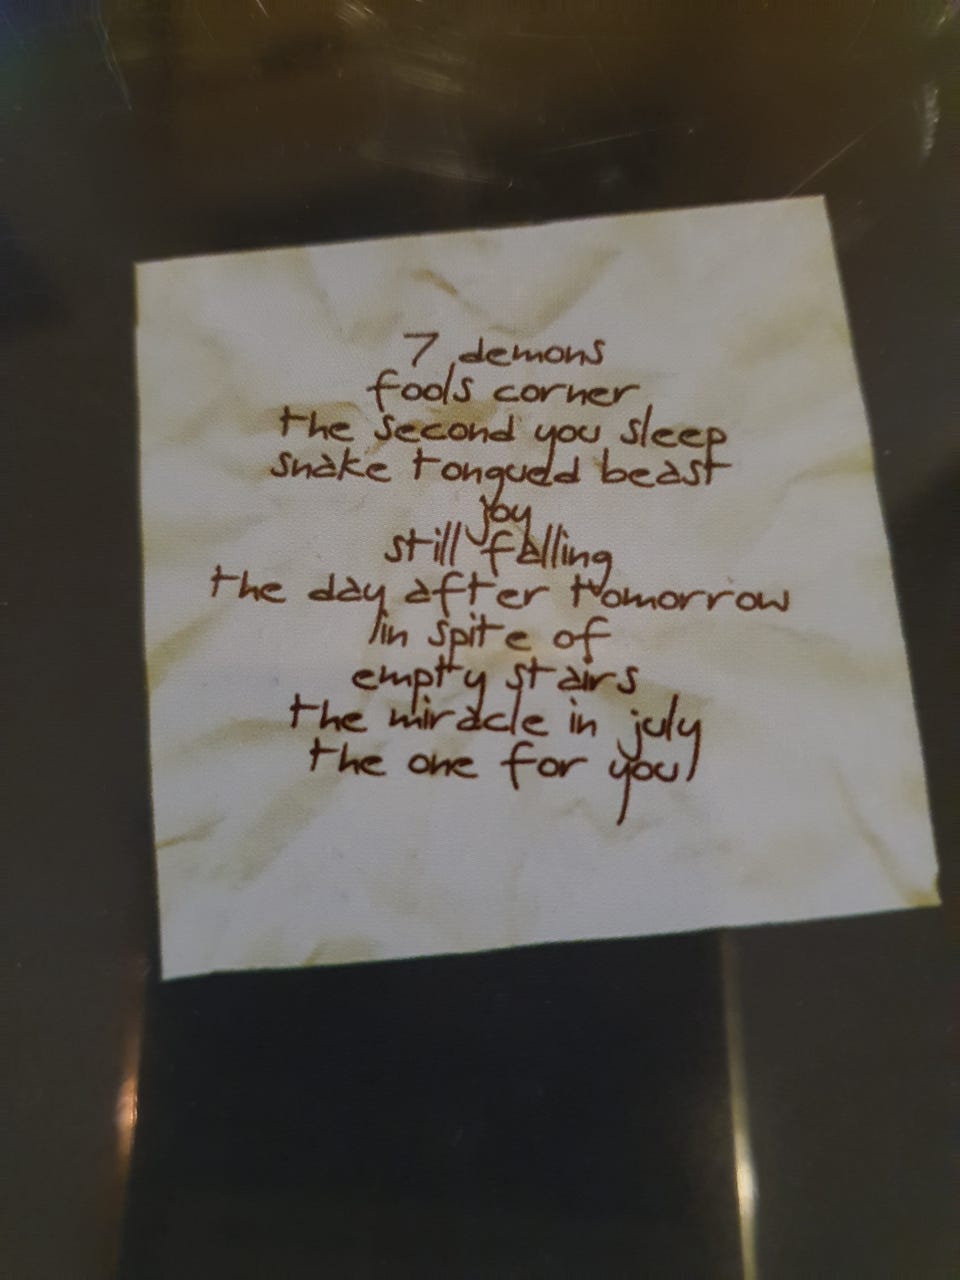 7 demons
fools corner
the second you sleep
snake tongued beast
joy
still falling
the day after tomorrow
in spite of
empty stairs
the miracle in july
the one for you